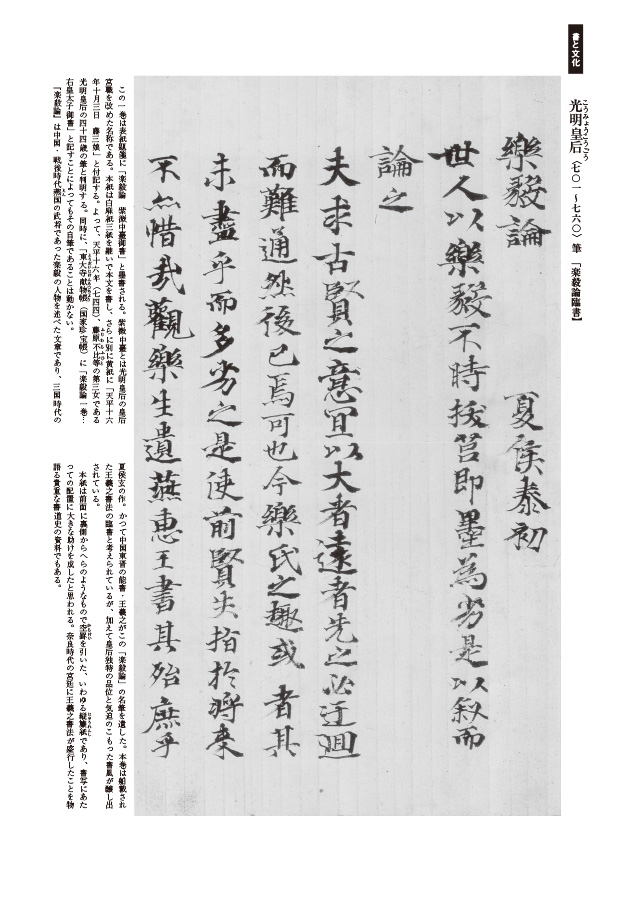 書と文化
光明皇后（七〇一～七六〇）筆　「楽毅論臨書」
こうみょうこうごう
樂毅論　夏侯泰初
世人以樂毅不時拔莒即墨為劣是以叙而
論之
夫求古賢之意冝以大者遠者先之必迂迴
而難通然後已焉可也今樂氏之趣或者其
未盡乎而多劣之是使前賢失指於將來
不亦惜哉觀樂生遺燕惠王書其殆庶乎
この一巻は表紙題箋に「楽毅論　紫微中臺御書」と墨書される。紫微中臺とは光明皇后の皇后
宮職を改めた名称である。本紙は白麻紙三紙を継いで本文を書し、さらに別に黄紙に「天平十六
年十月三日　藤三娘」と付記する。よって、天平十六年（七四四）、藤原不比等の第三女である
光明皇后の四十四歳の筆と判明する。同時に、「東大寺献物帳（国家珍宝帳）に「楽毅論一巻…
右皇太子御書」と記すことによってもその自筆であることは動かない。
「楽毅論」は中国・戦後時代燕国の武将であった楽毅の人物を述べた文章であり、三国時代の
夏侯玄の作。かつて中国東晋の能書・王羲之がこの「楽毅論」の名筆を遺した。本巻は舶載され
た王羲之書法の臨書と考えられているが、加えて皇后独特の品位と気迫のこもった書風が醸し出
されている。
本紙は前面に裏側からへらのようなもので空罫を引いた、いわゆる縦簾紙であり、書写にあた
っての配置に大きな助けを成したと思われる。奈良時代の宮廷に王羲之書法が盛行したことを物
語る貴重な書道史の資料でもある。